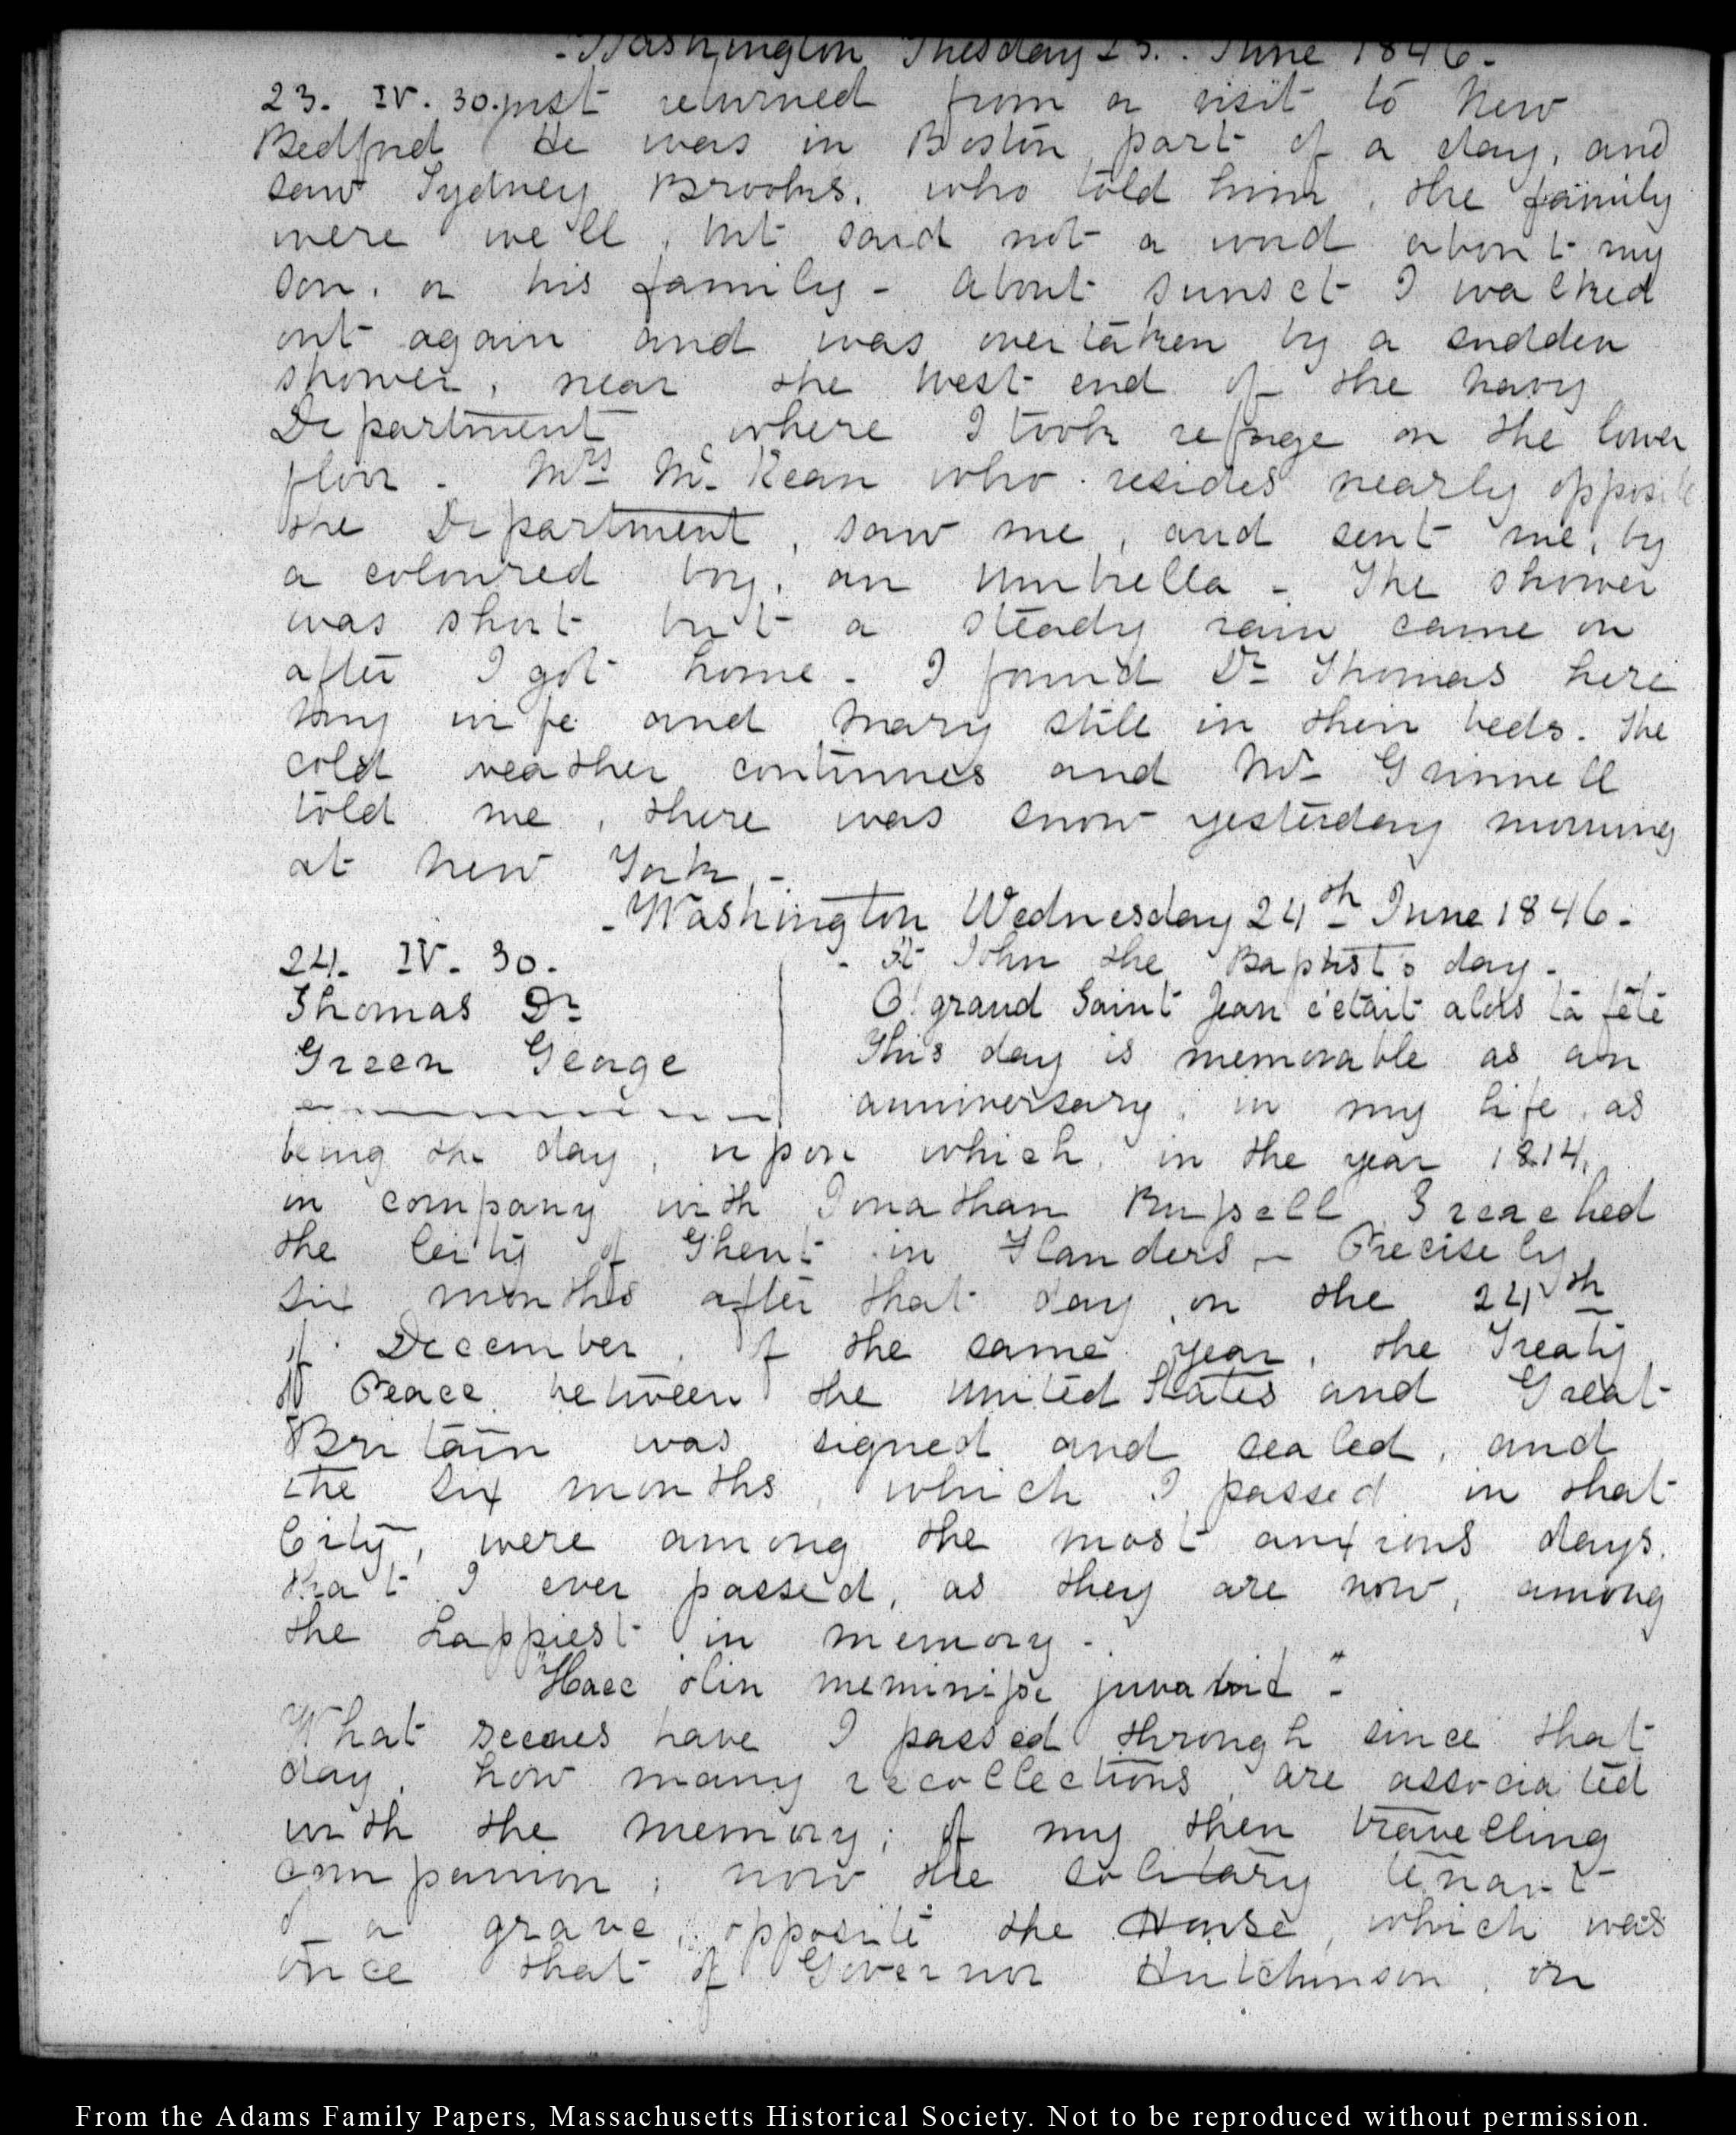 - Washington Tuesday 23. June 1846 -
23. IV. 30. just returned from a visit to New
Bedford He was in Boston, part of a day, and
saw Sydney Brooks, who told him, the family
were well, but said not a word about my
son, or his family - About sunset I walked
out again and was overtaken by a sudden
shower, near the West end of the Navy
Department where I took refuge on the lower
floor - Mrs Mc Kean who resides nearly opposite
the Department, saw me, and sent me, by
a coloured boy, an Umbrella - The shower
was short but a steady rain came on
after I got home - I found Dr Thomas here
my wife and Mary still in their beds. The
cold weather continues and Mr Grinnell
told me, there was snow yesterday morning
at New York. -
- Washington Wednesday 24th June 1846 -
24. IV. 30. - St John the Baptist's day -
Thomas Dr O! grand Saint Jean c'etait alors ta fête
Green George This day is memorable as an
anniversary, in my life, as
being the day, upon which, in the year 1814,
in company with Jonathan Russell I reached
the City of Ghent in Flanders - Precisely
six months after that day on the 24th
of December, of the same year, the Treaty
of Peace between the United States and Great
Britain was signed and sealed, and
the six months, which I passed in that
City, were among the most anxious days,
that I ever passed, as they are now, among
the happiest in memory -
"Haec olim meminisse juvabit" -
What scenes have I passed through since that
day, how many recollections are associated
with the memory; of my then travelling
companion; now the solitary tenant
of a grave, opposite the House, which was
once that of Governor Hutchinson, on
From the Adams Family Papers, Massachusetts Historical Society. Not to be reproduced without permission.